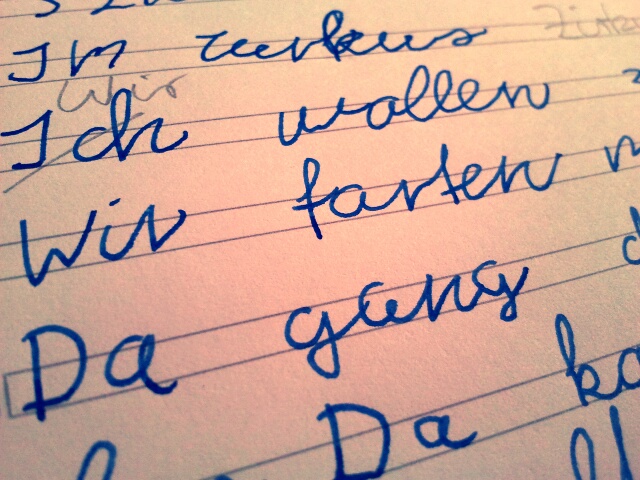 Im zurkus Zirk
Wir
Ich wollen
Wir farten
Da gang
Da